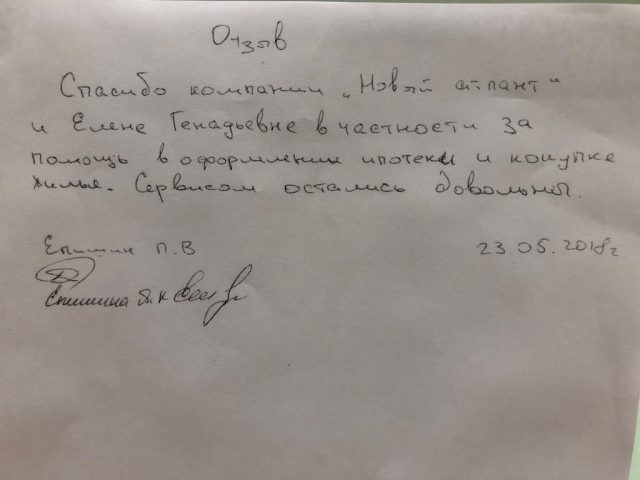 Отзыв
Спасибо компании „Новый атлант“
и Елене Генадьевне в частности за
помощь в оформлении ипотеки и покупке
жилья. Сервисом остались довольны.
Епишин П.В 23.05.2018г.
Епишина Я.К